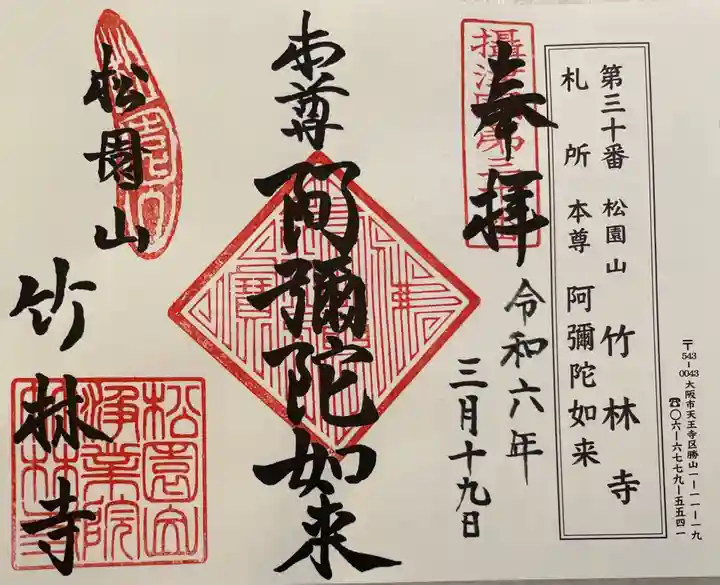 第三十番 松園山 竹林寺
札所 本尊 阿彌陀如来
〒543-0043 大阪市天王寺区勝山一-一一-一九
☎〇六-六七七九-五五四一
奉拝
令和六年
三月十九日
本尊
阿彌陀如来
松園山
竹林寺
松園山
浄業院
竹林寺